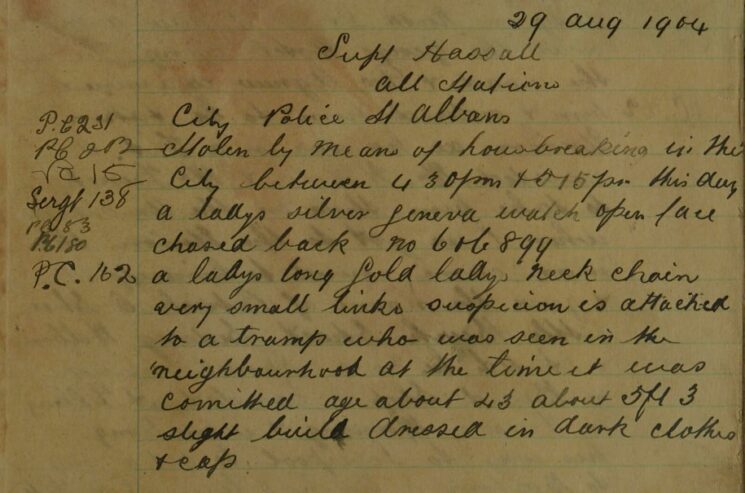 29 aug 1904
Supt Hassall
all Stations
City Police St Albans
Stolen by means of housbreaking in the
City between 4 30pm + 5 15pm this day
a ladys silver geneva watch open face
chased back no 606899
a ladys long gold ladys neck chain
very small links suspicion is attached
to a tramp who was seen in the
neighbourhood at the time it was
comitted age about 43 about 5ft 3
slight build dressed in dark clothes
+ cap
P.C 231
PC
Sergt 138
PC 83
PC 180
P.C. 162